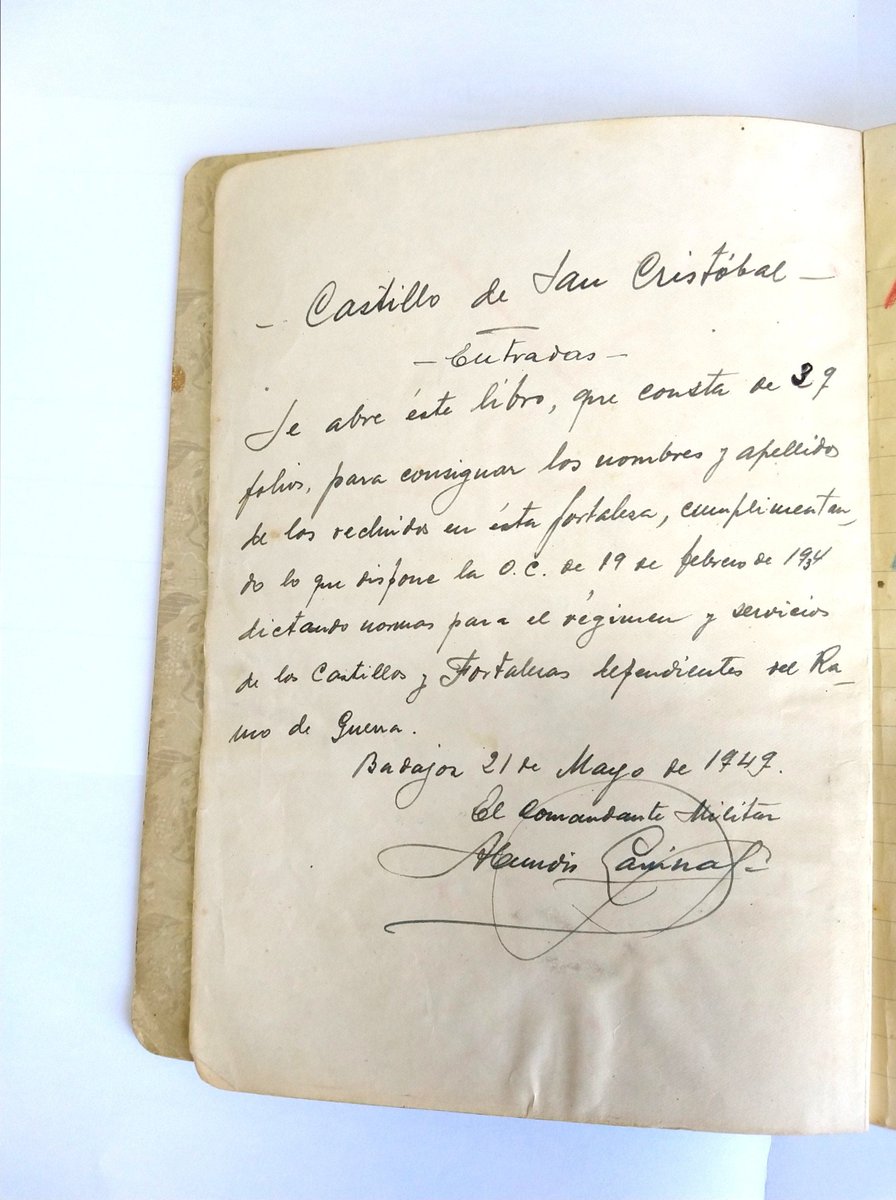 - Castillo de San Cristóbal -
- Entradas -
Se abre éste libro, que consta de 39
folios, para consignar los nombres y apellidos
de los recluidos en ésta fortaleza, cumplimentan-
do lo que dispone la O.C. de 19 de febrero de 1934
dictando normas para el régimen y servicios
de los Castillos y Fortalezas dependientes del Ra-
mo de Guerra.
Badajoz 21 de Mayo de 1949.
El Comandante Militar